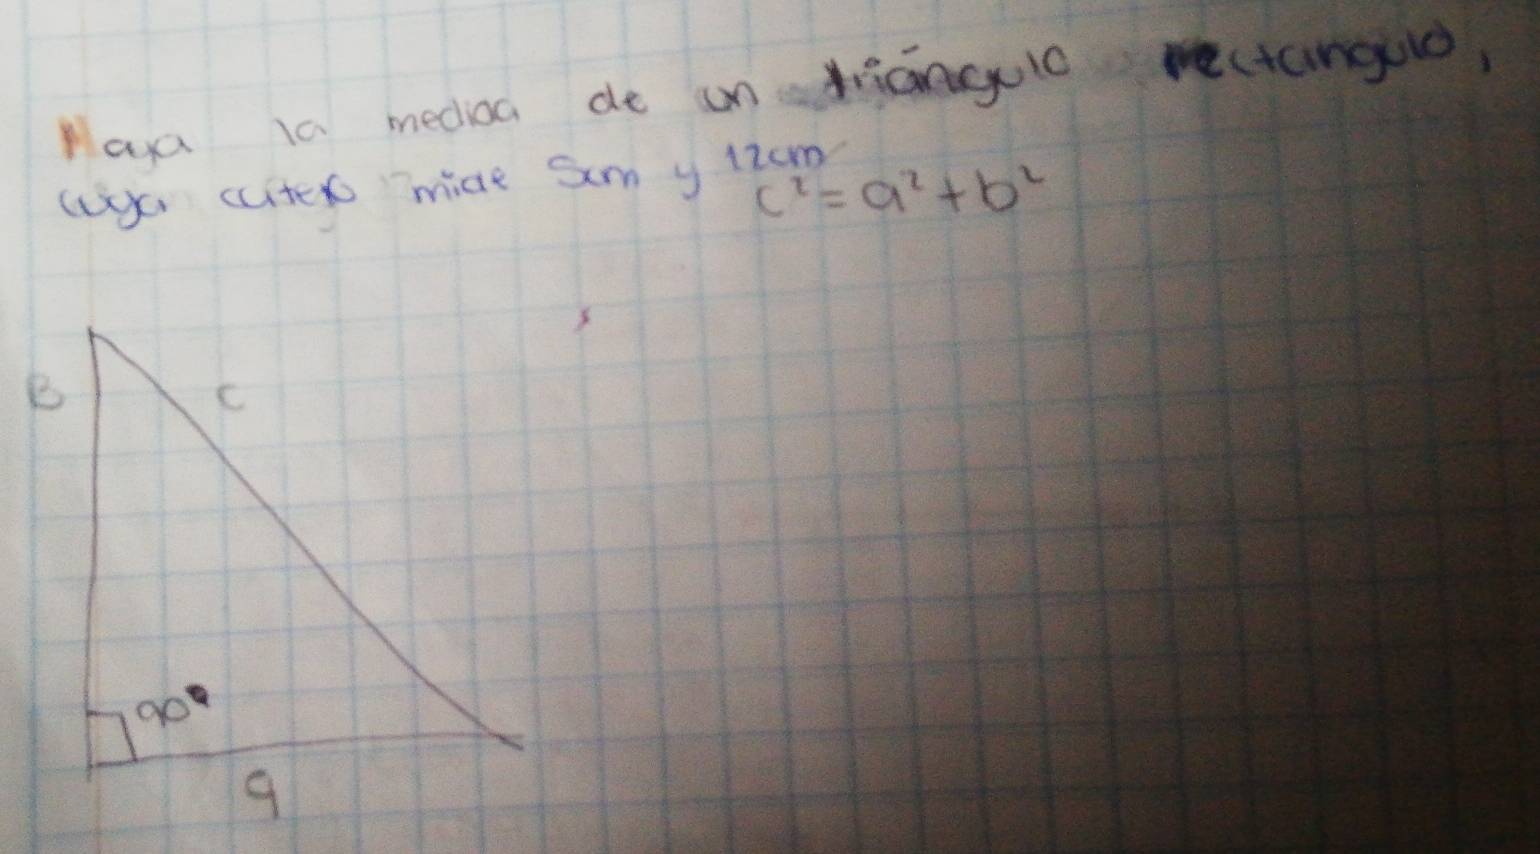 Haya la medida de un triángulo rectangulo,
cuya cateto mide 5cm y 12cm
c² = a² + b²
B
C
90°
a